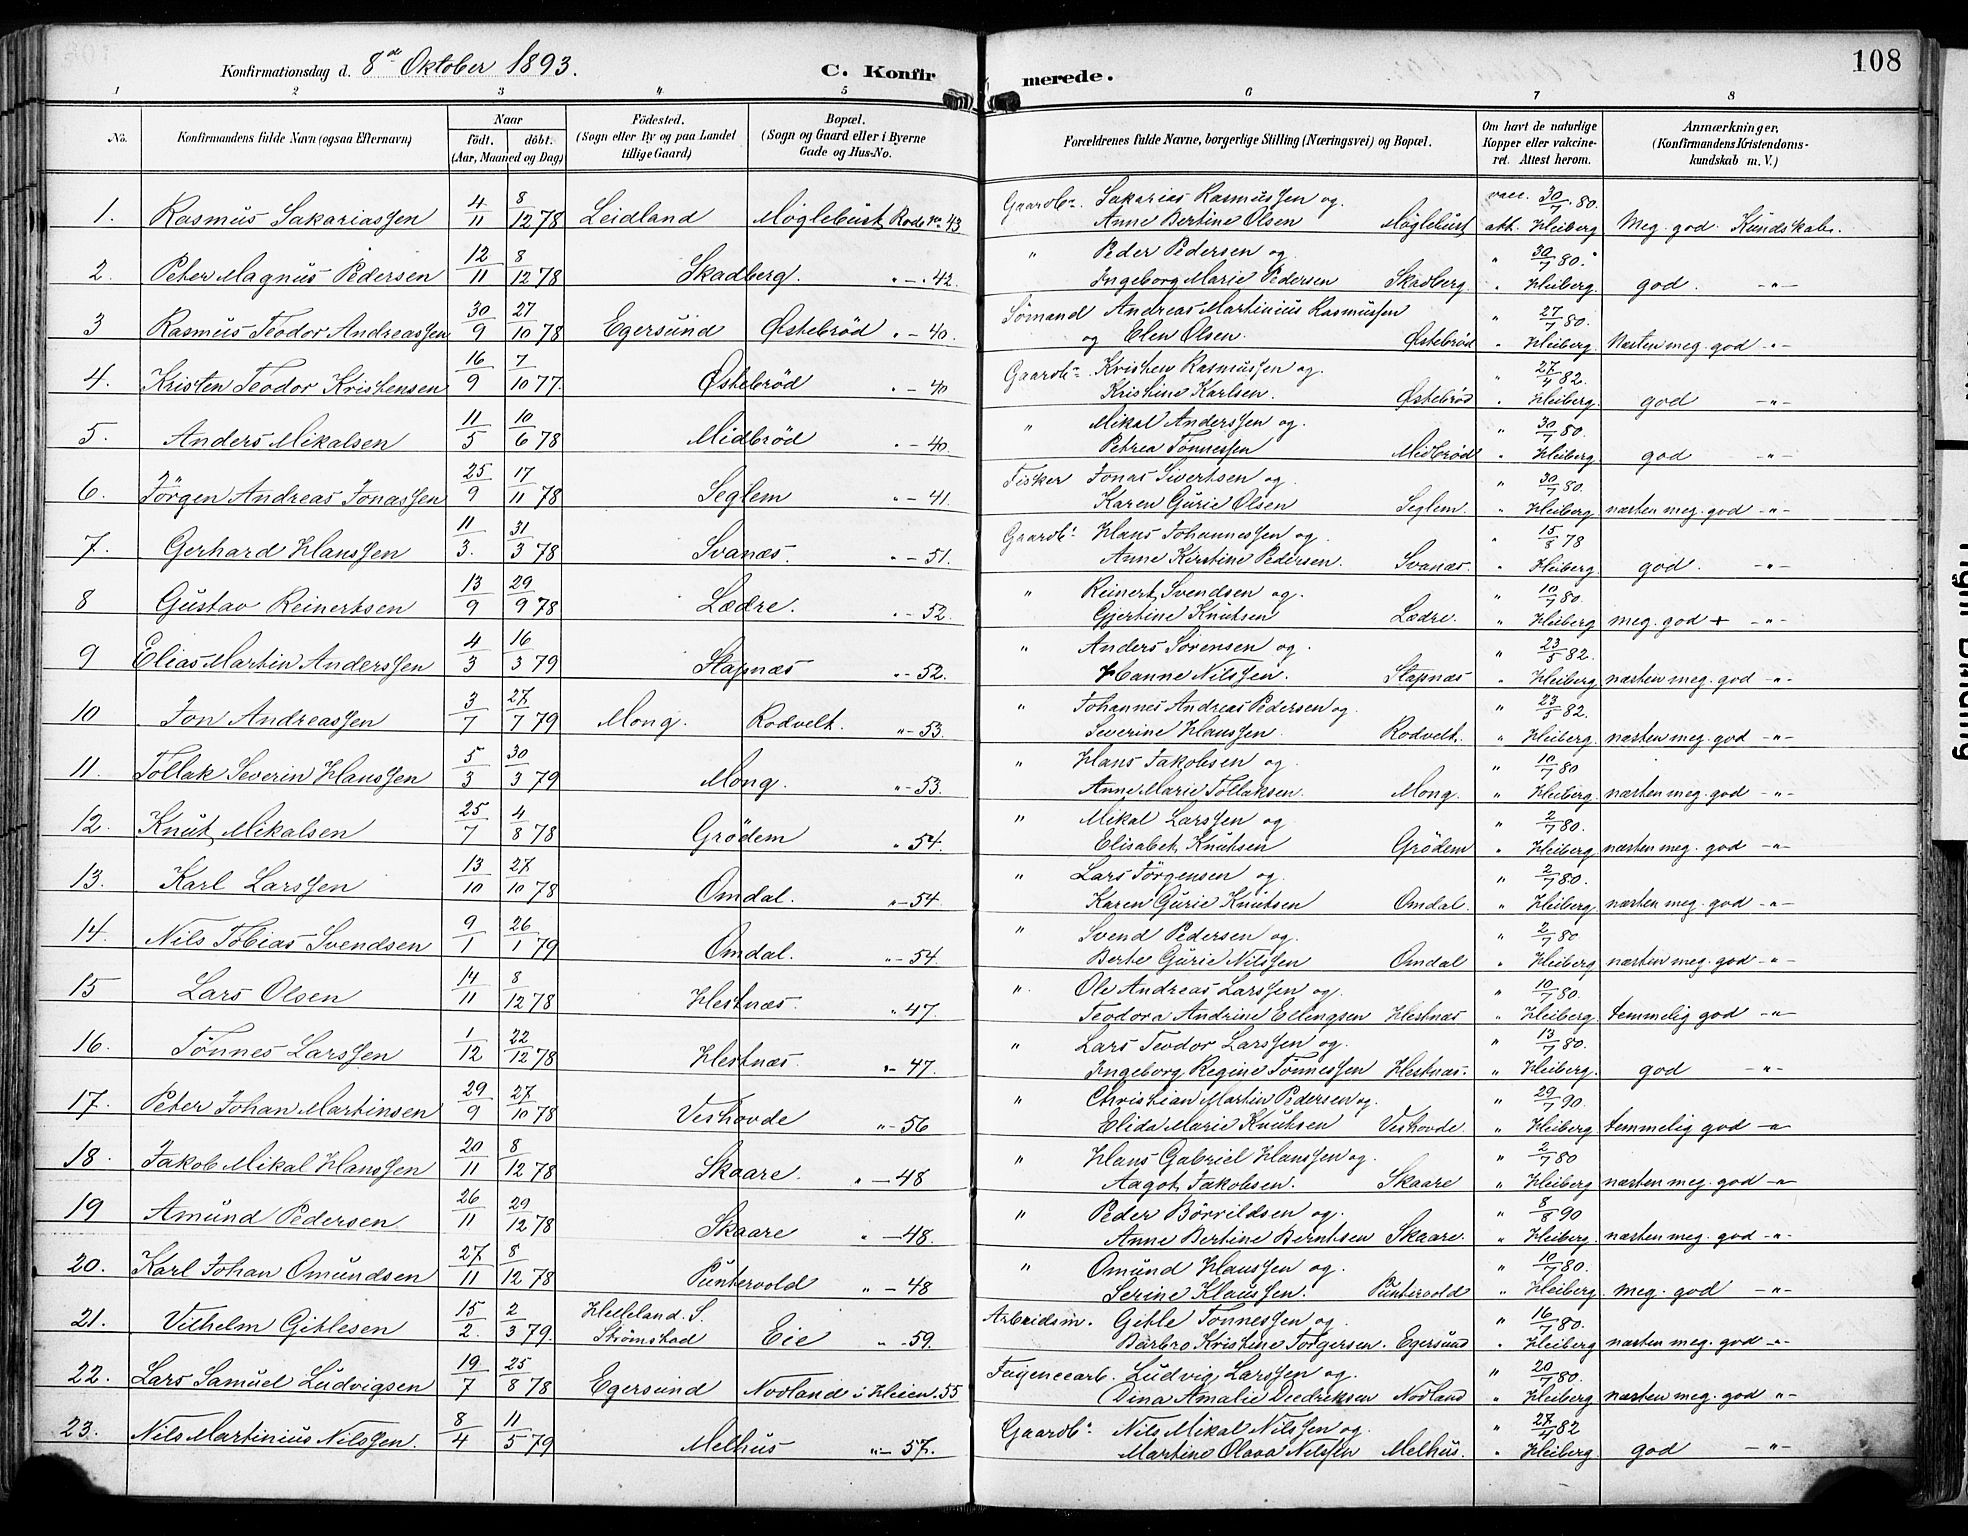 108
Konfirmationsdag d. 8de Oktober 1893. C. Konfirmerede.
1 2 3 4 5 6 7 8
No. Konfirmandens fulde Navn (ogsaa Efternavn) Naar født. døbt. (Aar, Maaned og Dag) Fødested. (Sogn eller By og paa Landet tillige Gaard) Bopæl. (Sogn og Gaard eller i Byerne Gade og Hus-No. Forældrenes fulde Navne, borgerlige Stilling (Næringsvei) og Bopæl. Om havt de naturlige Kopper eller vakcineret. Attest herom. Anmærkninger, (Konfirmandens Kristendomskundskab m. V.)
1. Rasmus Sakariassen 4/11 8/12 78 Leidland Møglebust Rode No 43 Gaardbr. Sakarias Rasmussen og vacc. 30/7 80.
Anne Bertine Olsen Møglebust att. Heiberg Meg. god. Kundskab.
2. Peter Magnus Pedersen 12/11 8/12 78 Skadberg. " - " 42. " Peder Pedersen og " 30/7 80.
Ingeborg Marie Pedersen Skadberg. " Heiberg. god. -"-
3 Rasmus Teodor Andreassen 30/9 27/10 78 Egersund Østebrød " - 40. Sømand Andreas Martinius Rasmussen " 27/7 80.
og Elen Olsen. Østebrød " Heiberg. Næsten meg. god -"-
4. Kristen Teodor Kristensen 16/9 7/10 77. Østebrød " - 40 Gaardbr. Kristen Rasmussen og. " 27/4 82.
Kristine Karlsen. Østebrød " Heiberg. god -"-
5. Anders Mikalsen 11/5 10/6 78 Midbrød " - 40. " Mikal Anderssen og. " 30/7 80.
Petrea Tønnessen Midbrød " Heiberg. god -"-
6. Jørgen Andreas Jonassen 25/9 17/11 78 Seglem " - 41. Fisker Jonas Sivertsen og. " 30/7 80.
Karen Gurie Olsen Seglem. " Heiberg næsten meg. god -"-
7. Gerhard Hanssen 11/3. 31/3 78 Svanæs. " - 51. Gaardbr. Hans Johannessen og. " 15/8 78
Anne Kirstine Pedersen. Svanæs. " Heiberg. god. -"-
8 Gustav Reinertsen 13/9 29/9 78 Lædre. " - 52. " Reinert Svendsen og. " 10/7 80.
Gjertine Knutsen Lædre. " Heiberg meg. god + -"-
9 Elias Martin Anderssen 4/3 16/3 79 Stapnæs " - 52. " Anders Sørensen og. " 23/5 82.
Hanne Nilssen. Stapnæs " Heiberg. næsten meg. god -"-
10 Jon Andreassen 3/7 27/7 79 Mong. Rodvelt. " - 53. " Johannes Andreas Pedersen og. " 23/5 82.
Severine Hanssen. Rodvelt. " Heiberg. næsten meg. god -"-
11. Tollak Severin Hanssen 5/3 30/3 79 Mong. " - 53. " Hans Jakobsen og. " 10/7 80
Anne Marie Tollaksen. Mong. " Heiberg. næsten meg. god -"-
12. Knut Mikalsen 25/7 4/8 78 Grødem " - 54. " Mikal Larssen og. " 2/7 80.
Elisabet Knutsen Grødem " Heiberg næsten meg. god -"-
13. Karl Larssen 13/10 27/10 78 Omdal. " - 54. " Lars Jørgensen og. " 2/7 80.
Karen Gurie Knutsen Omdal. " Heiberg. næsten meg. god -"-
14. Nils Tobias Svendsen 9/1 26/1 79 Omdal. " - 54. " Svend Pedersen og. " 2/7 80
Berte Gurie Nilssen Omdal " Heiberg næsten meg. god -"-
15 Lars Olsen 14/11 8/12 78 Hestnæs. " 47. " Ole Andreas Larssen og. " 10/7 80.
Teodora Andrine Ellingsen Hestnæs " Heiberg. temmelig god -"-
16. Tønnes Larssen 1/12 22/12 78 Hestnæs " - 47. " Lars Teodor Larssen og. " 13/7 80.
Ingeborg Regine Tønnessen Hestnæs. " Heiberg. god -"-
17. Peter Johan Martinsen 29/9 27/10 78 Veshovde " - 56 " Christian Martin Pedersen og. " 29/7 90.
Elida Marie Knutsen Veshovde. " Heiberg temmelig god -"-
18. Jakob Mikal Hanssen 20/11 8/12 78 Skaare. " - 48 " Hans Gabriel Hanssen og. " 2/7 80
Aagot Jakobsen. Skaare " Heiberg næsten meg. god -"-
19 Amund Pedersen. 26/11 29/12 78 Skaare " - 48. " Peder Børrildsen og. " 8/8 90
Anne Bertine Berntsen Skaare. " Heiberg. næsten meg. god -"-
20. Karl Johan Omundsen 27/11 8/12 78 Puntervold " - 48 " Omund Hanssen og. " 10/7 80.
Serine Klaussen. Puntervold " Heiberg. meg. god -"-
21. Vilhelm Gitlesen 15/2. 2/3 79. Helleland. S. Strømstad Eie " - 59. Arbeidsm. Gitle Tønnessen og. " 16/7 80.
Barbro Kristine Torgersen. Egersund " Heiberg. næsten meg. god -"-
22. Lars Samuel Ludvigsen 19/7 25/8 78 Egersund Nodland i Heien. 55 Fajencearb. Ludvig Larssen og. " 20/7 80.
Dina Amalie Dredriksen Nodland " Heiberg næsten meg. god -"-
23. Nils Martinius Nilssen. 8/4 11/5 79 Melhus " - 57. Gaardbr. Nils Mikal Nilssen og. " 27/4 82
Martine Olava Nilssen Melhus. " Heiberg. god -"-